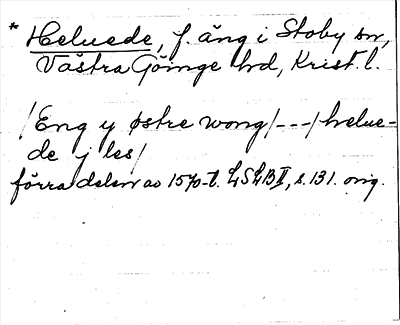 * Heluede, f. äng i Stoby sn,
Västra Göinge hd, Krist. l.
/Eng y østre wong/---/helue-
de j les/
förra delen av 1570-t. LSLB II, s. 131. orig.